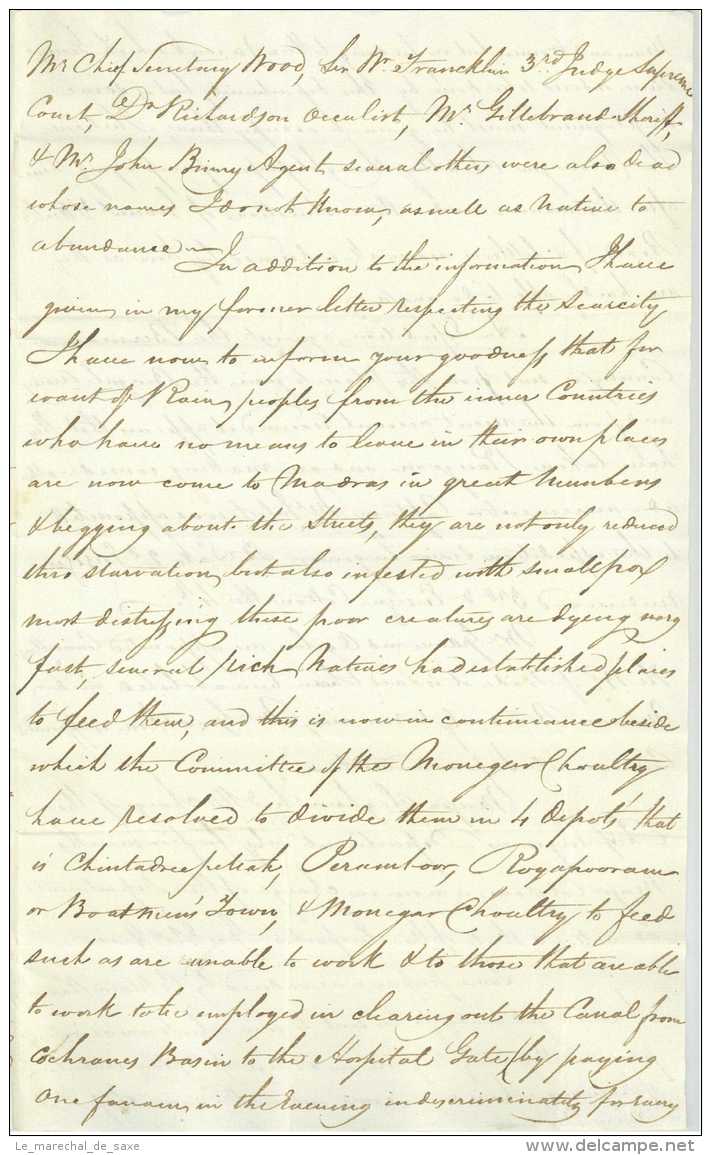 Mr Chief Secretary Wood, Sir Wm Francklin 3rd Judge Supreme
Court, Dr Richardson Occulist, Mr Gillebrand Sheriff,
& Mr John Binny Agent several others were also dead
whose names I do not know, as well as Native to
abundance ~
In addition to the information I have
given in my former letter respecting the Scarcity
I have now to inform your goodness that for
want of Rain, peoples from the inner Countries
who have no means to leave in their own places
are now come to Madras in great Numbers
& begging about the Streets, they are not only reduced
thro starvation, but also infested with small pox
most distressing these poor creatures are dyeing very
fast, several rich Natives had established places
to feed them, and this is now in continuance beside
which the Committee of the Monegar Choultry
have resolved to divide them in 4 depots, that
is Chintadreepettah, Peramboor, Royapooram
or Boatmen's Town, & Monegar Choultry to feed
such as are unable to work & to those that are able
to work to be employed in clearing out the Canal from
Cochranes Basin to the Hospital Gate (by paying
One fanam in the Evening indiscriminately for every
Le_marechal_de_saxe
www.delcampe.net